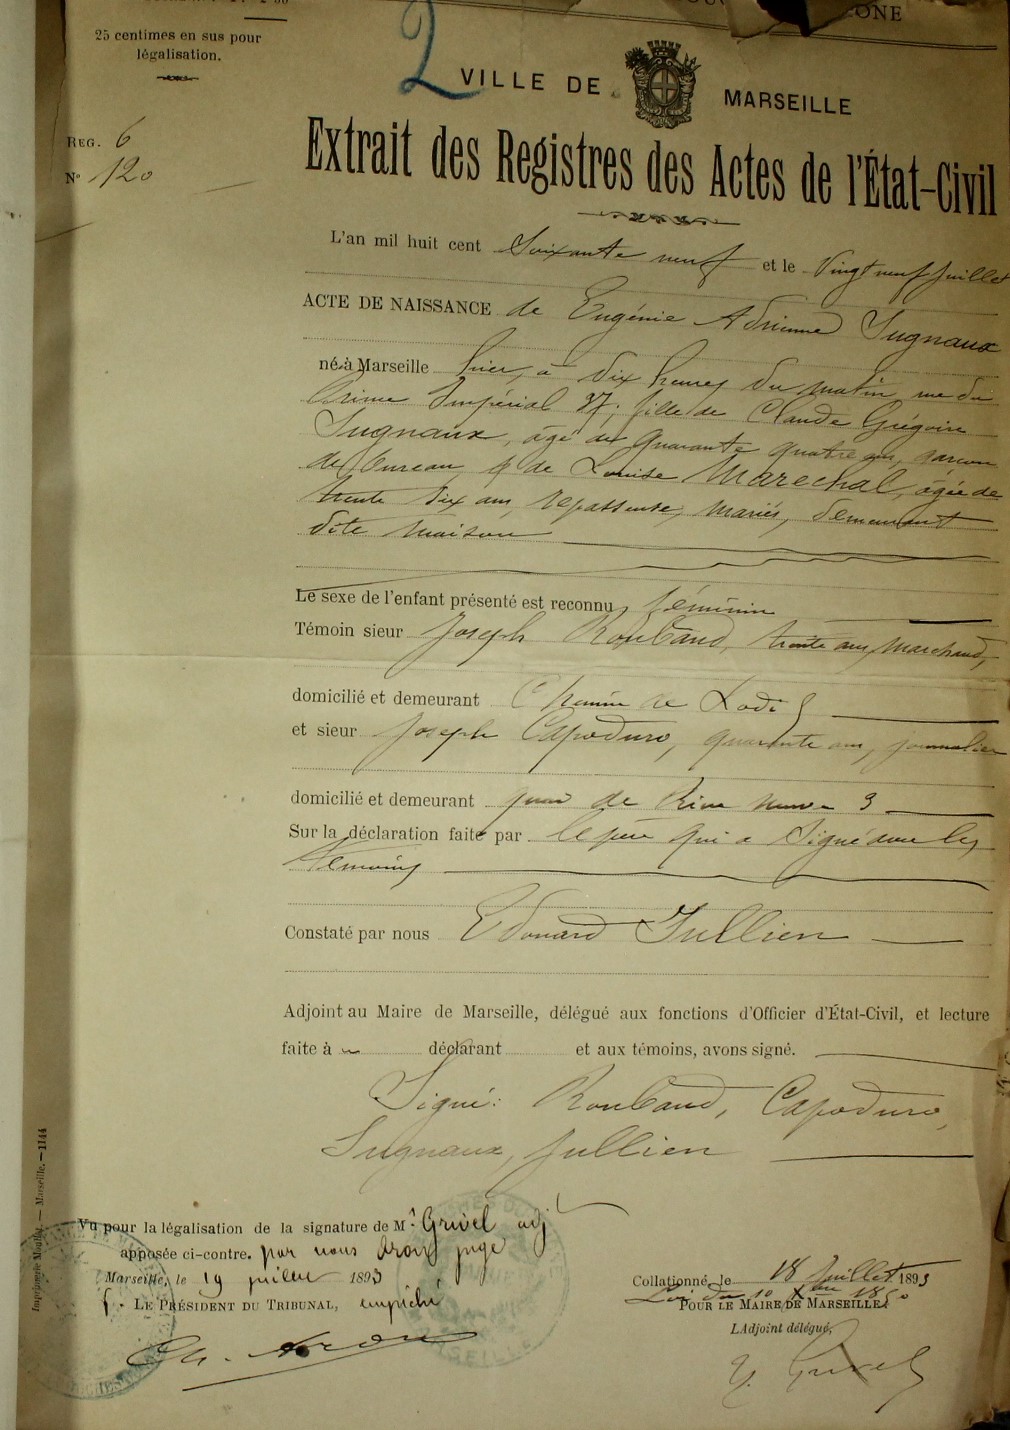 25 centimes en sus pour
légalisation.
2
VILLE DE MARSEILLE
REG. 6
N° 120
Extrait des Registres des Actes de l'État-Civil
L'an mil huit cent Soixante neuf et le Vingt neuf Juillet
ACTE DE NAISSANCE de Eugénie Adrienne Sugnaux
né à Marseille hier, à dix heures du matin, rue du
Prince Impérial 37, fille de Claude Grégoire
Sugnaux, âgé de quarante quatre ans, garçon
de bureau, & de Louise Marechal, âgée de
trente dix ans, repasseuse, mariés, demeurant
dite maison
Le sexe de l'enfant présenté est reconnu féminin
Témoin sieur Joseph Roubaud, trente ans, marchand,
domicilié et demeurant Chemin de Lodi
et sieur Joseph Capoduro, quarante ans, journalier
domicilié et demeurant quai de Rive neuve 3
Sur la déclaration faite par le père qui a Signé avec les
témoins
Constaté par nous Edouard Jullien
Adjoint au Maire de Marseille, délégué aux fonctions d'Officier d'État-Civil, et lecture
faite à déclarant et aux témoins, avons signé.
Signé: Roubaud, Capoduro,
Sugnaux, Jullien
Imprimerie Moullot. — Marseille. — 1144
Vu pour la légalisation de la signature de Mr Grivel adj
apposée ci-contre. par nous juge
Marseille, le 19 juillet 1893
P. LE PRÉSIDENT DU TRIBUNAL, empêché
Collationné, le 18 Juillet 1893
Loi du 10 Xbre 1850
POUR LE MAIRE DE MARSEILLE:
L'Adjoint délégué,
Grivel
MARSEILLE